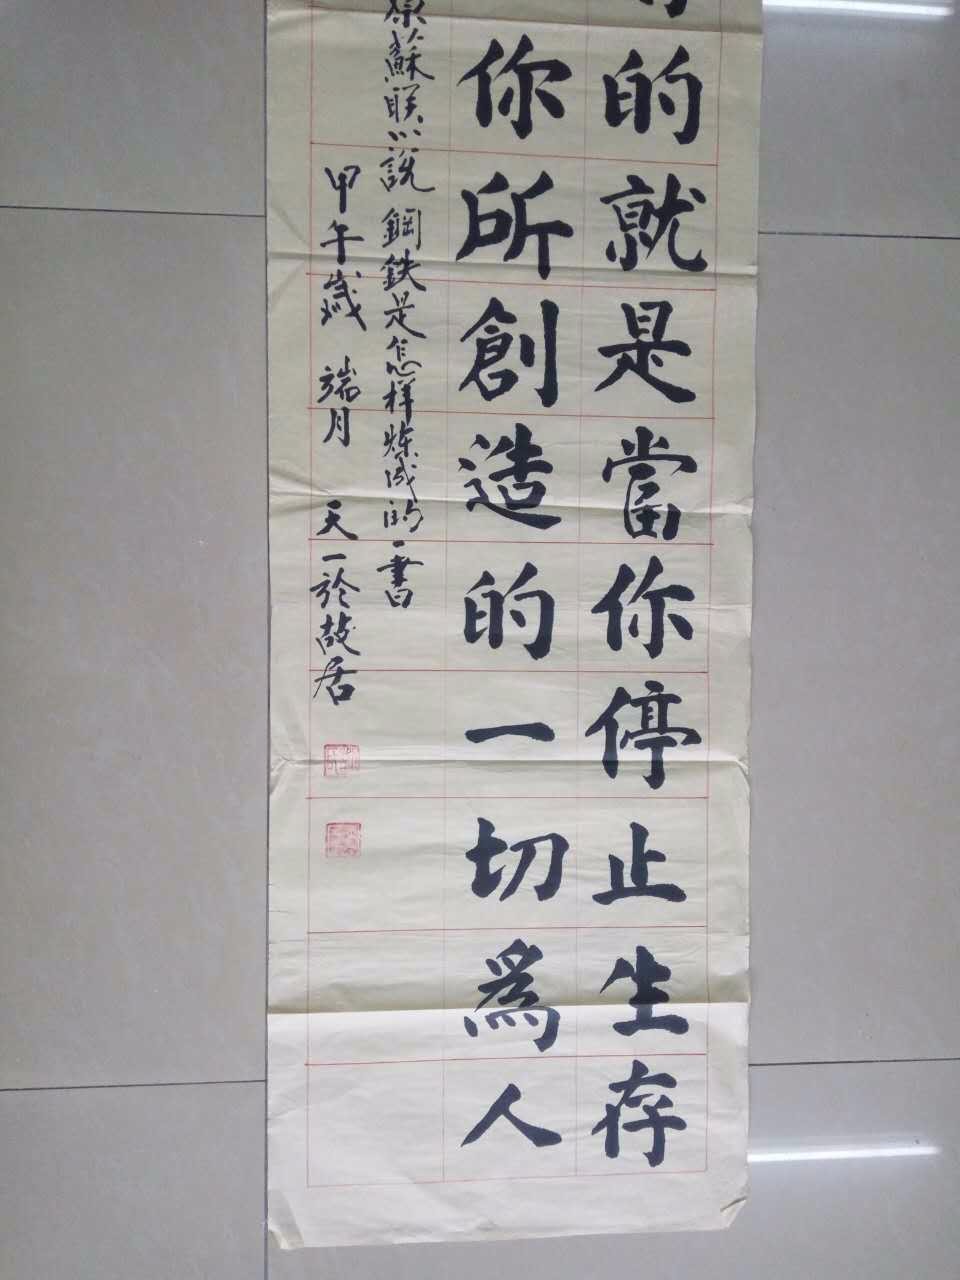 的就是當你停止生存
你所創造的一切爲人
原蘇联小說 鋼鉄是怎样炼成的一書
甲午歲 端月 天一於故居